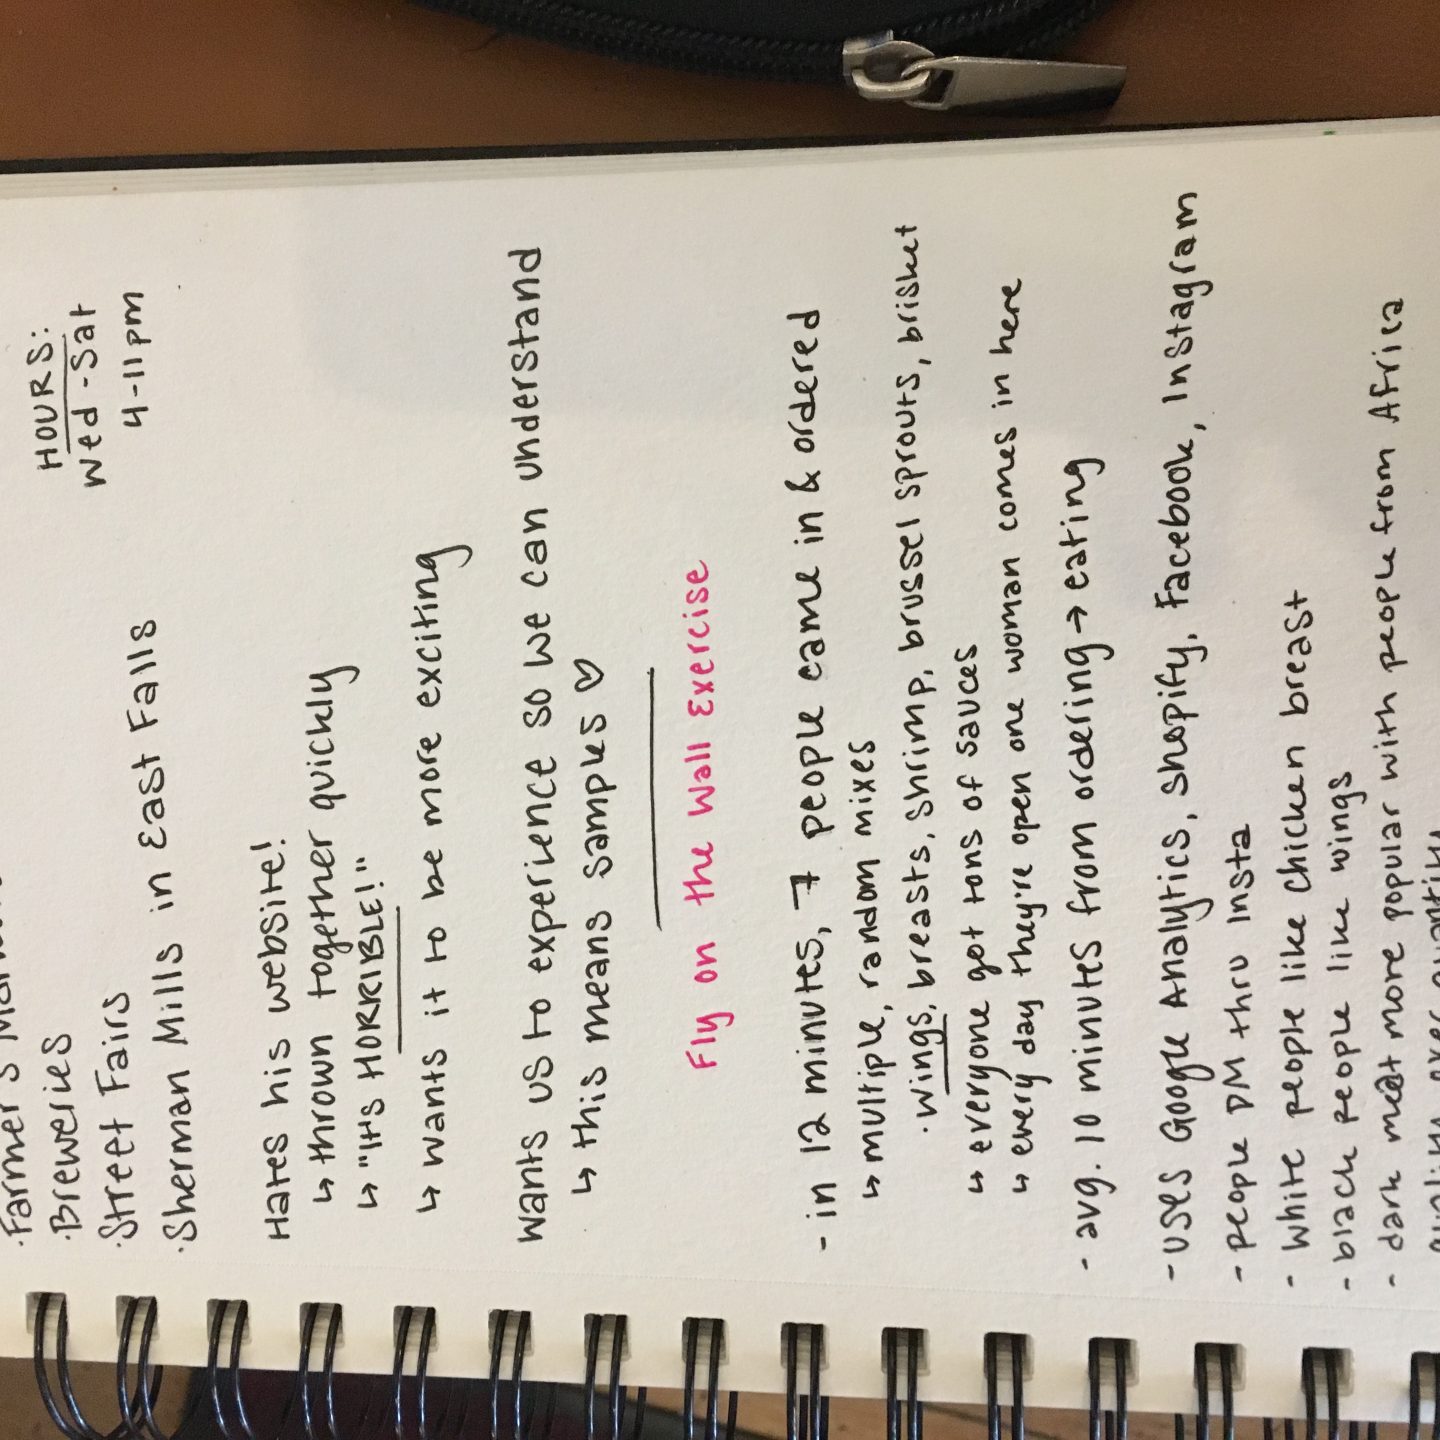 · Farmer's
· Breweries
· Street Fairs
· Sherman Mills in East Falls
HOURS:
Wed-Sat
4-11pm
Hates his website!
↳ thrown together quickly
↳ "ITS HORRIBLE!"
↳ wants it to be more exciting
Wants us to experience so we can understand
↳ this means samples ♡
Fly on the Wall Exercise
- in 12 minutes, 7 people came in & ordered
↳ multiple, random mixes
· wings, breasts, shrimp, brussel sprouts, brisket
↳ everyone got tons of sauces
↳ every day they're open one woman comes in here
- avg. 10 minutes from ordering → eating
- uses Google Analytics, Shopify, Facebook, Instagram
- people DM thru Insta
- white people like chicken breast
- black people like wings
- dark meat more popular with people from Africa
quality over quantity